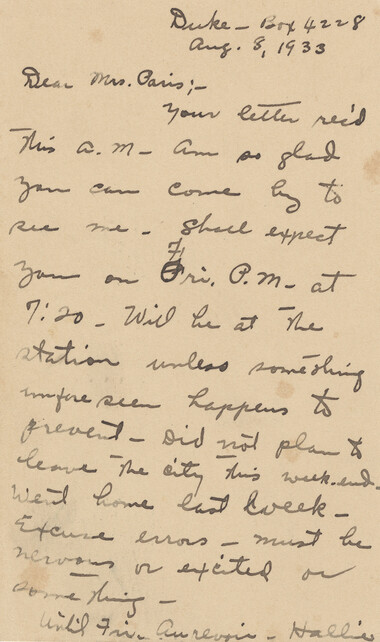 Duke - Box 4228
Aug. 8, 1933
Dear Mrs. Paris;-
Your letter rec'd
this A.M - Am so glad
you can come by to
see me - Shall expect
you on Fri. P.M. - at
7:20 - Will be at the
station unless something
unforeseen happens to
prevent - Did not plan to
leave the city this week-end -
Went home last week -
Excuse errors - must be
nervous or excited or
something -
Until Fri. Aurevoir - Hallie